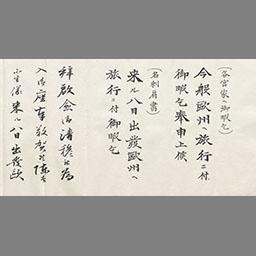 (各宮家ヘ御暇乞)
今般歐州ヘ旅行ニ付
御暇乞奉申上候
(名刺肩書)
来ル八日出發歐州ヘ
旅行ニ付御暇乞
拝啓愈御清穆之為
入御座奉敬賀候陳者
小生儀来ル八日出發歐